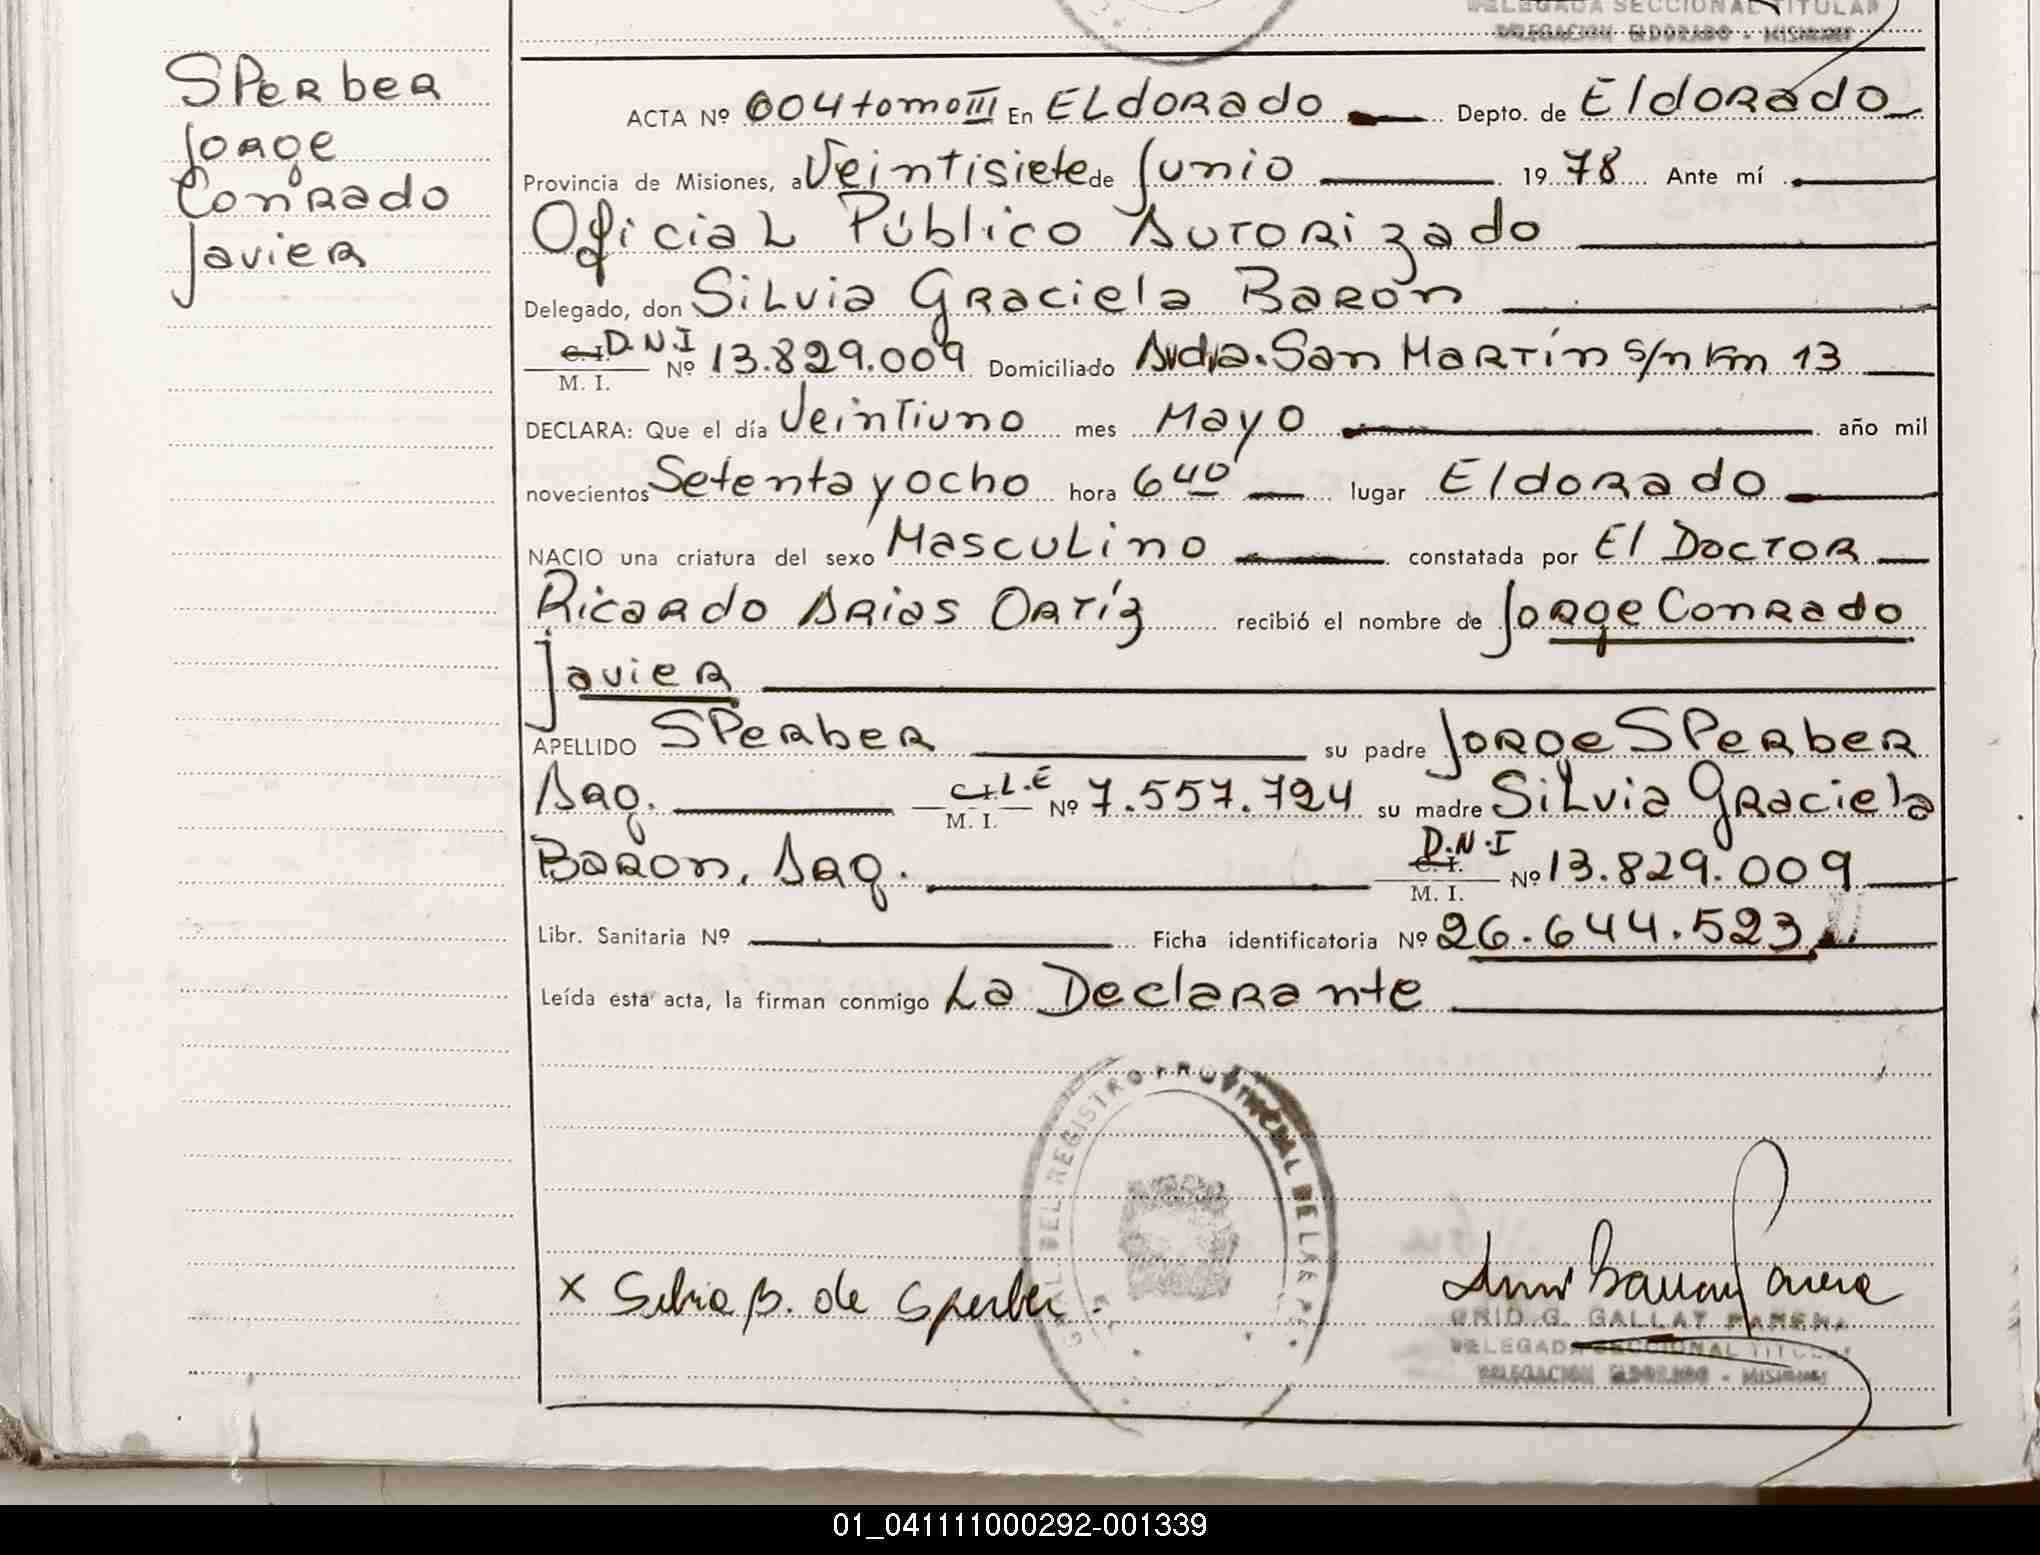 DELEGADA SECCIONAL TITULAR
DELEGACION ELDORADO - MISIONES
SPerber
Jorge
Conrado
Javier
ACTA Nº 004 tomo III En ELdorado Depto. de Eldorado
Provincia de Misiones, a Veintisiete de Junio 1978 Ante mí
Oficial Público Autorizado
Delegado, don Silvia Graciela Barón
C.I. D.N.I
M. I. Nº 13.829.009 Domiciliado Avda. San Martín s/n Km 13
DECLARA: Que el día Veintiuno mes Mayo año mil
novecientos Setenta y ocho hora 6 40 lugar Eldorado
NACIO una criatura del sexo Masculino constatada por El Doctor
Ricardo Arias Ortíz recibió el nombre de Jorge Conrado
Javier
APELLIDO SPerber su padre Jorge SPerber
Arg. C.I. L.E
M. I. Nº 7.557.724 su madre Silvia Graciela
Baron, Arg. D.N.I
C.I.
M. I. Nº 13.829.009
Libr. Sanitaria Nº Ficha identificatoria Nº 26.644.523
Leída esta acta, la firman conmigo La Declarante
DEL REGISTRO PROVINCIAL DE LAS P
x Silvia B. de Sperber.
G. GALLAY
DELEGADA SECCIONAL TITULAR
DELEGACION ELDORADO - MISIONES
01_041111000292-001339